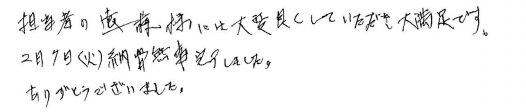 担当者の様には大変良くしていただき大満足です。
2月7日(火)納骨無事完了しました。
ありがとうございました。